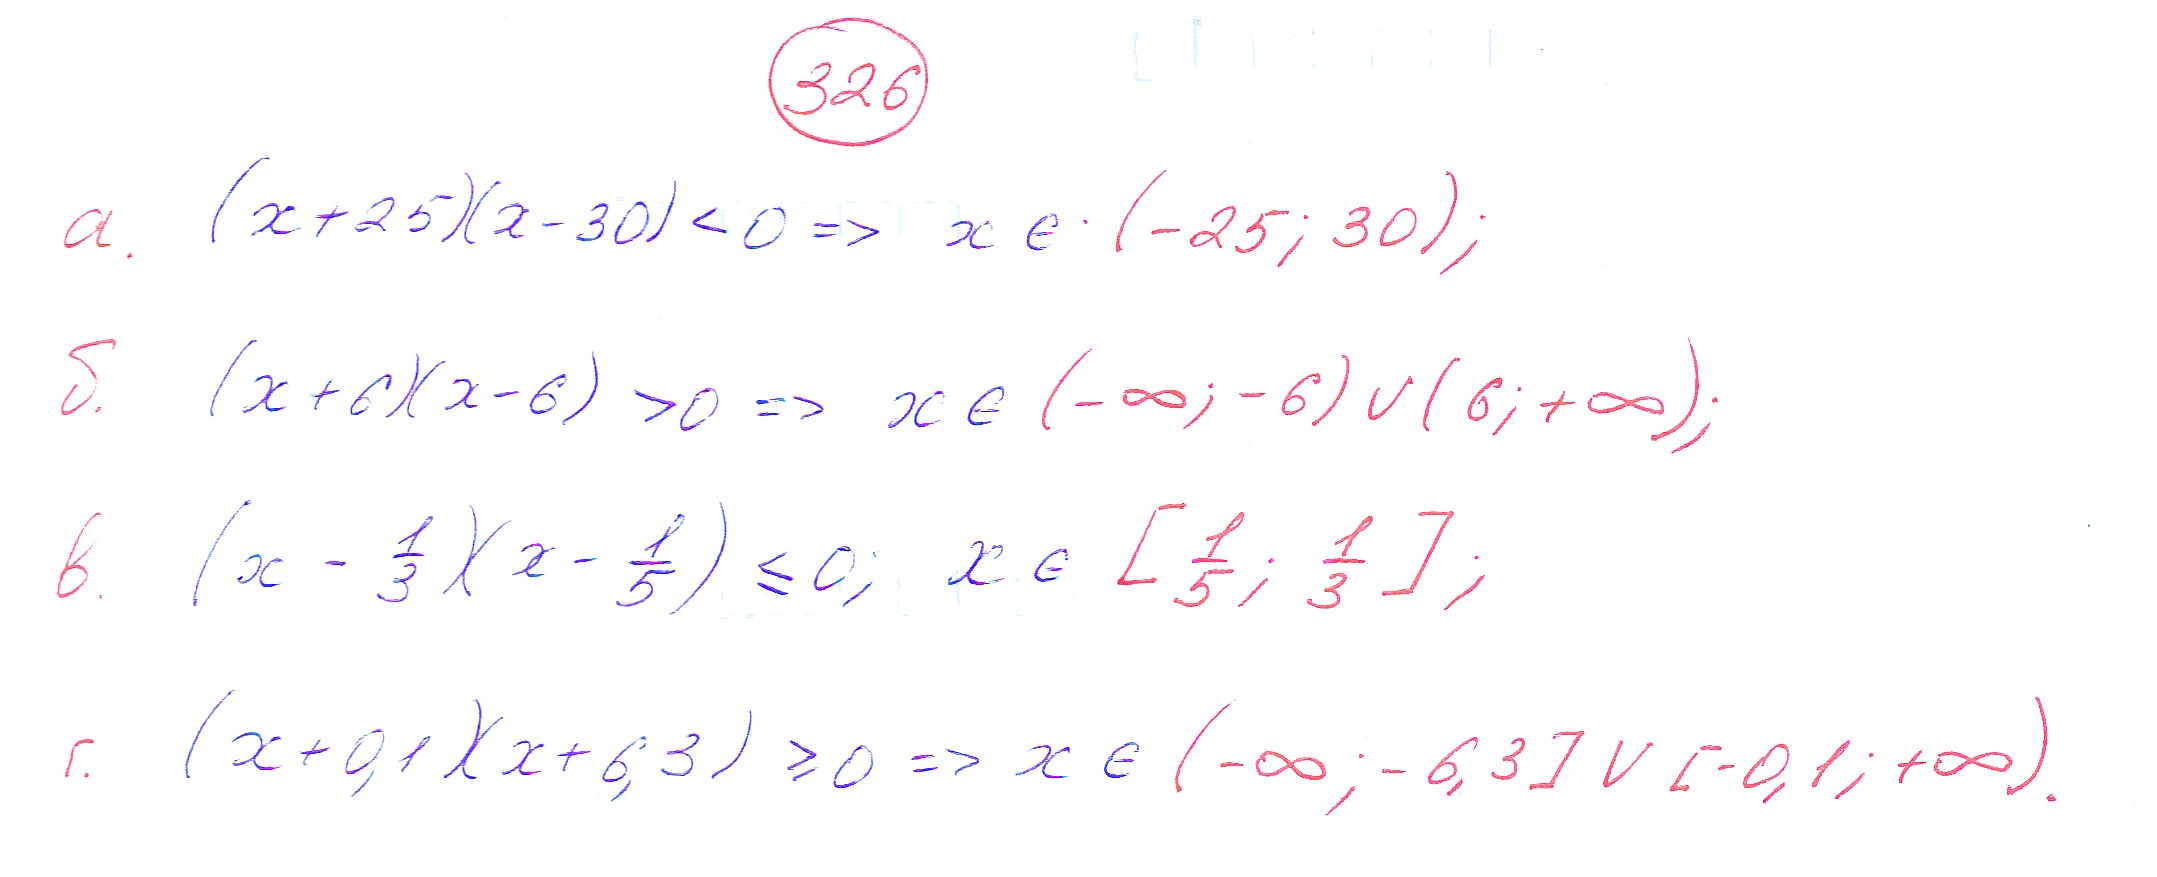 326
а. (x+25)(x-30)<0 => x ∈ (-25; 30);
б. (x+6)(x-6) >0 => x ∈ (-∞; -6) ∨ (6; +∞);
в. (x - 1/3)(x - 1/5) ≤ 0; x ∈ [1/5; 1/3];
г. (x+0,1)(x+6,3) ≥0 => x ∈ (-∞; -6,3] ∨ [-0,1; +∞).